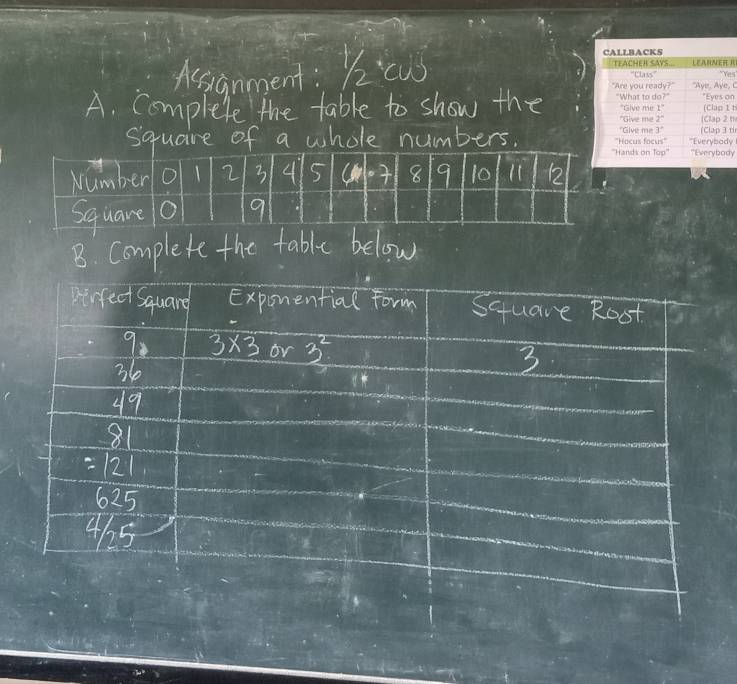 Assignment: 1/2 CW
A. Complete the table to show the
square of a whole numbers.
Number 0 1 2 3 4 5 6 7 8 9 10 11 12
Square 0 9
B. Complete the table below
Perfect Square Exponential Form Square Root
9 3x3 or 3² 3
36
49
81
121
625
4/25
CALLBACKS
TEACHER SAYS... LEARNER R
"Class" "Yes
"Are you ready?" "Aye, Aye, C
"What to do?" "Eyes on
"Give me 1" (Clap 1 ti
"Give me 2" (Clap 2 ti
"Give me 3" (Clap 3 ti
"Hocus focus" "Everybody
"Hands on Top" "Everybody